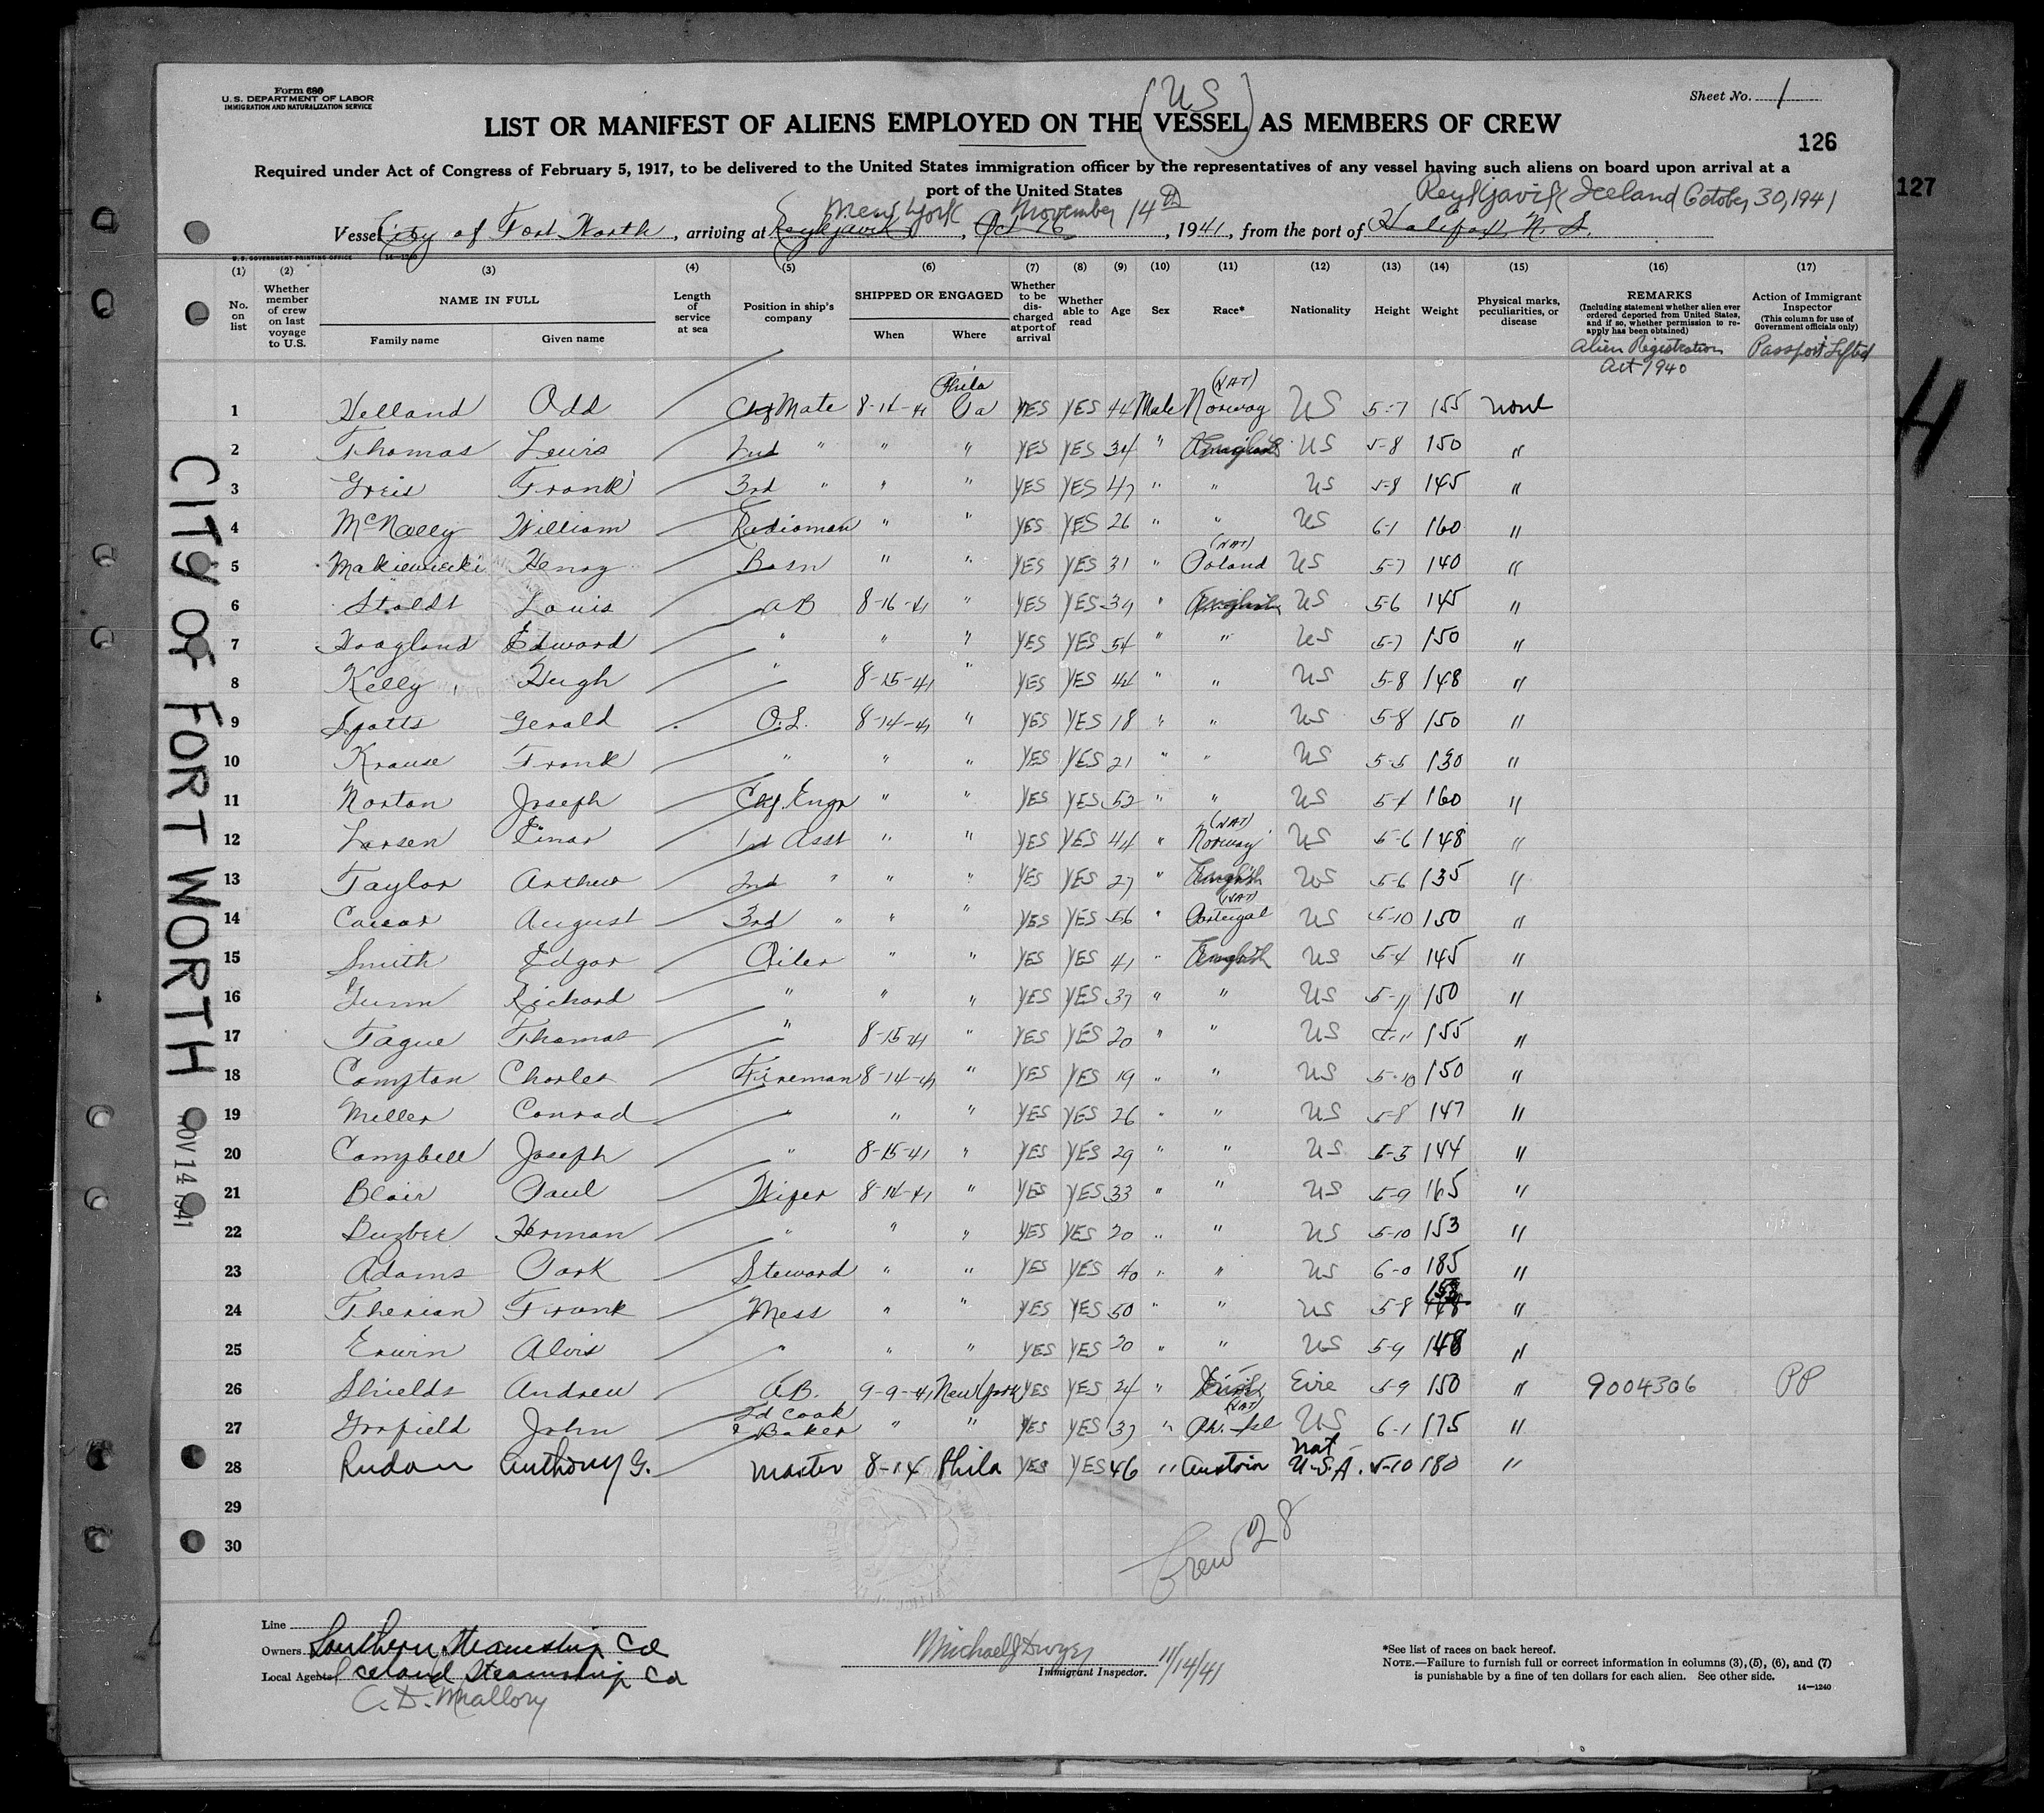 Form 680
U.S. DEPARTMENT OF LABOR
IMMIGRATION AND NATURALIZATION SERVICE
Sheet No. 1
(US)
LIST OR MANIFEST OF ALIENS EMPLOYED ON THE VESSEL AS MEMBERS OF CREW
126
Required under Act of Congress of February 5, 1917, to be delivered to the United States immigration officer by the representatives of any vessel having such aliens on board upon arrival at a
port of the United States
127
New York November 14th Reykjavik Iceland October 30, 1941
Vessel City of Fort Worth, arriving at Reykjavik, Oct 16, 1941, from the port of Halifax, N. S.
U. S. GOVERNMENT PRINTING OFFICE 14-1240
(1) (2) (3) (4) (5) (6) (7) (8) (9) (10) (11) (12) (13) (14) (15) (16) (17)
No. on list
Whether member of crew on last voyage to U.S.
NAME IN FULL
Family name Given name
Length of service at sea
Position in ship's company
SHIPPED OR ENGAGED
When Where
Whether to be discharged at port of arrival
Whether able to read
Age Sex Race* Nationality Height Weight
Physical marks, peculiarities, or disease
REMARKS
(Including statement whether alien ever ordered deported from United States, and if so, whether permission to reapply has been obtained)
Alien Registration
Act 1940
Action of Immigrant Inspector
(This column for use of Government officials only)
Passport Lifted
1 Helland Odd Chf Mate 8-14-41 Phila Pa YES YES 44 Male (NAT) Norway US 5-7 155 none
2 Thomas Lewis 2nd " " " YES YES 34 " English US 5-8 150 "
3 Greis Frank 3rd " " " YES YES 47 " " US 5-8 145 "
4 McNally William Radioman " " YES YES 26 " " US 6-1 160 "
5 Makiewiecki Henry Bosn " " YES YES 31 " (NAT) Poland US 5-7 140 "
6 Stoldt Louis AB 8-16-41 " YES YES 39 " English US 5-6 145 "
7 Hoagland Edward " " " YES YES 54 " " US 5-7 150 "
8 Kelly Hugh " 8-15-41 " YES YES 44 " " US 5-8 148 "
9 Spotts Gerald O.S. 8-14-41 " YES YES 18 " " US 5-8 150 "
10 Krause Frank " " " YES YES 21 " " US 5-5 130 "
11 Norton Joseph Chf. Engr " " YES YES 52 " " US 5-4 160 "
12 Larsen Einar 1st Asst " " YES YES 44 " (NAT) Norway US 5-6 148 "
13 Taylor Arthur 2nd " " " YES YES 27 " English US 5-6 135 "
14 August 3rd " " " YES YES 56 " (NAT) Portugal US 5-10 150 "
15 Smith Edgar Oiler " " YES YES 41 " English US 5-4 145 "
16 Gunn Richard " " " YES YES 37 " " US 5-11 150 "
17 Tague Thomas " 8-15-41 " YES YES 20 " " US 5-11 155 "
18 Compton Charles Fireman 8-14-41 " YES YES 19 " " US 5-10 150 "
19 Miller Conrad " " " YES YES 26 " " US 5-8 147 "
20 Campbell Joseph " 8-15-41 " YES YES 29 " " US 5-5 144 "
21 Blair Paul Wiper 8-14-41 " YES YES 33 " " US 5-9 165 "
22 Buzbee Herman " " " YES YES 20 " " US 5-10 153 "
23 Adams Park Steward " " YES YES 40 " " US 6-0 185 "
24 Therian Frank Mess " " YES YES 50 " " US 5-8 158 148 "
25 Erwin Alvis " " " YES YES 30 " " US 5-9 148 "
26 Shields Andrew A.B. 9-9-41 New York YES YES 24 " Irish Eire 5-9 150 " 9004306 PP
27 Grofield John 2d Cook & Baker " " YES YES 37 " (NAT) Ph. Isl US 6-1 175 "
28 Rudan Anthony G. Master 8-14 Phila YES YES 46 " Austria Nat U.S.A. 5-10 180 "
29
30
Crew 28
CITY OF FORT WORTH
NOV 14 1941
4
Line
Owners Southern Steamship Co
Local Agents Iceland Steamship Co
C. D. Mallory
Michael J Dwyer 11/14/41
Immigrant Inspector.
*See list of races on back hereof.
NOTE.—Failure to furnish full or correct information in columns (3), (5), (6), and (7)
is punishable by a fine of ten dollars for each alien. See other side.
14—1240